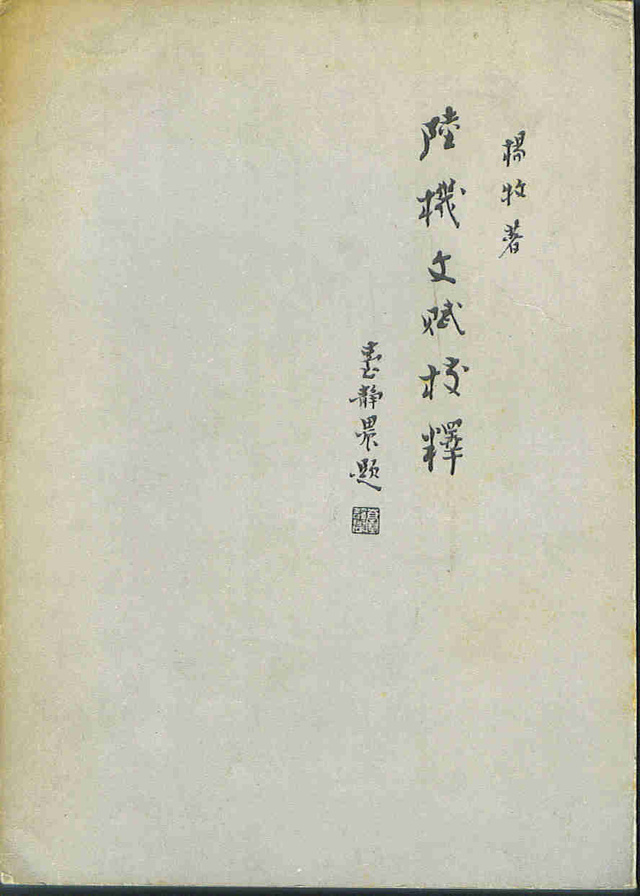 楊牧著
陸機文賦校釋
臺靜農題